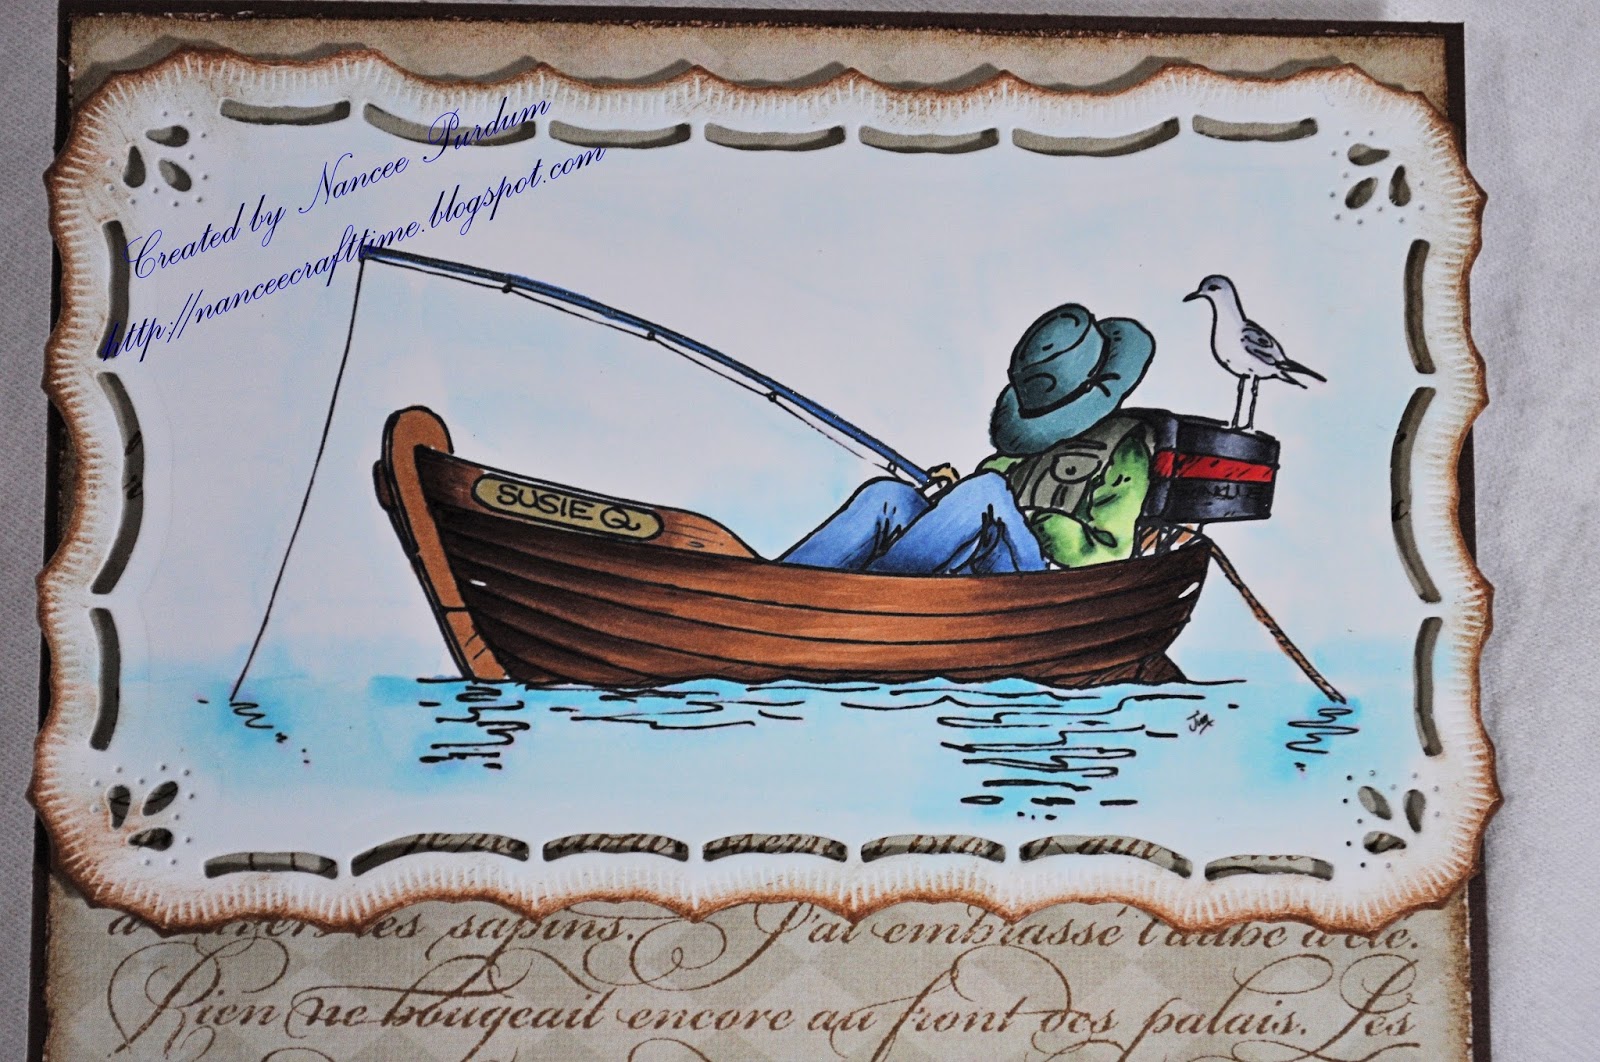 Created by Nancee Purdum
http://nanceecrafttime.blogspot.com
SUSIE Q
les sapins. J'ai embrassé l'aube d'été.
Rien ne bougeait encore au front des palais. Les